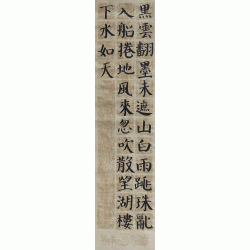 黑雲翻墨未遮山白雨跳珠亂
入船捲地風來忽吹散望湖樓
下水如天